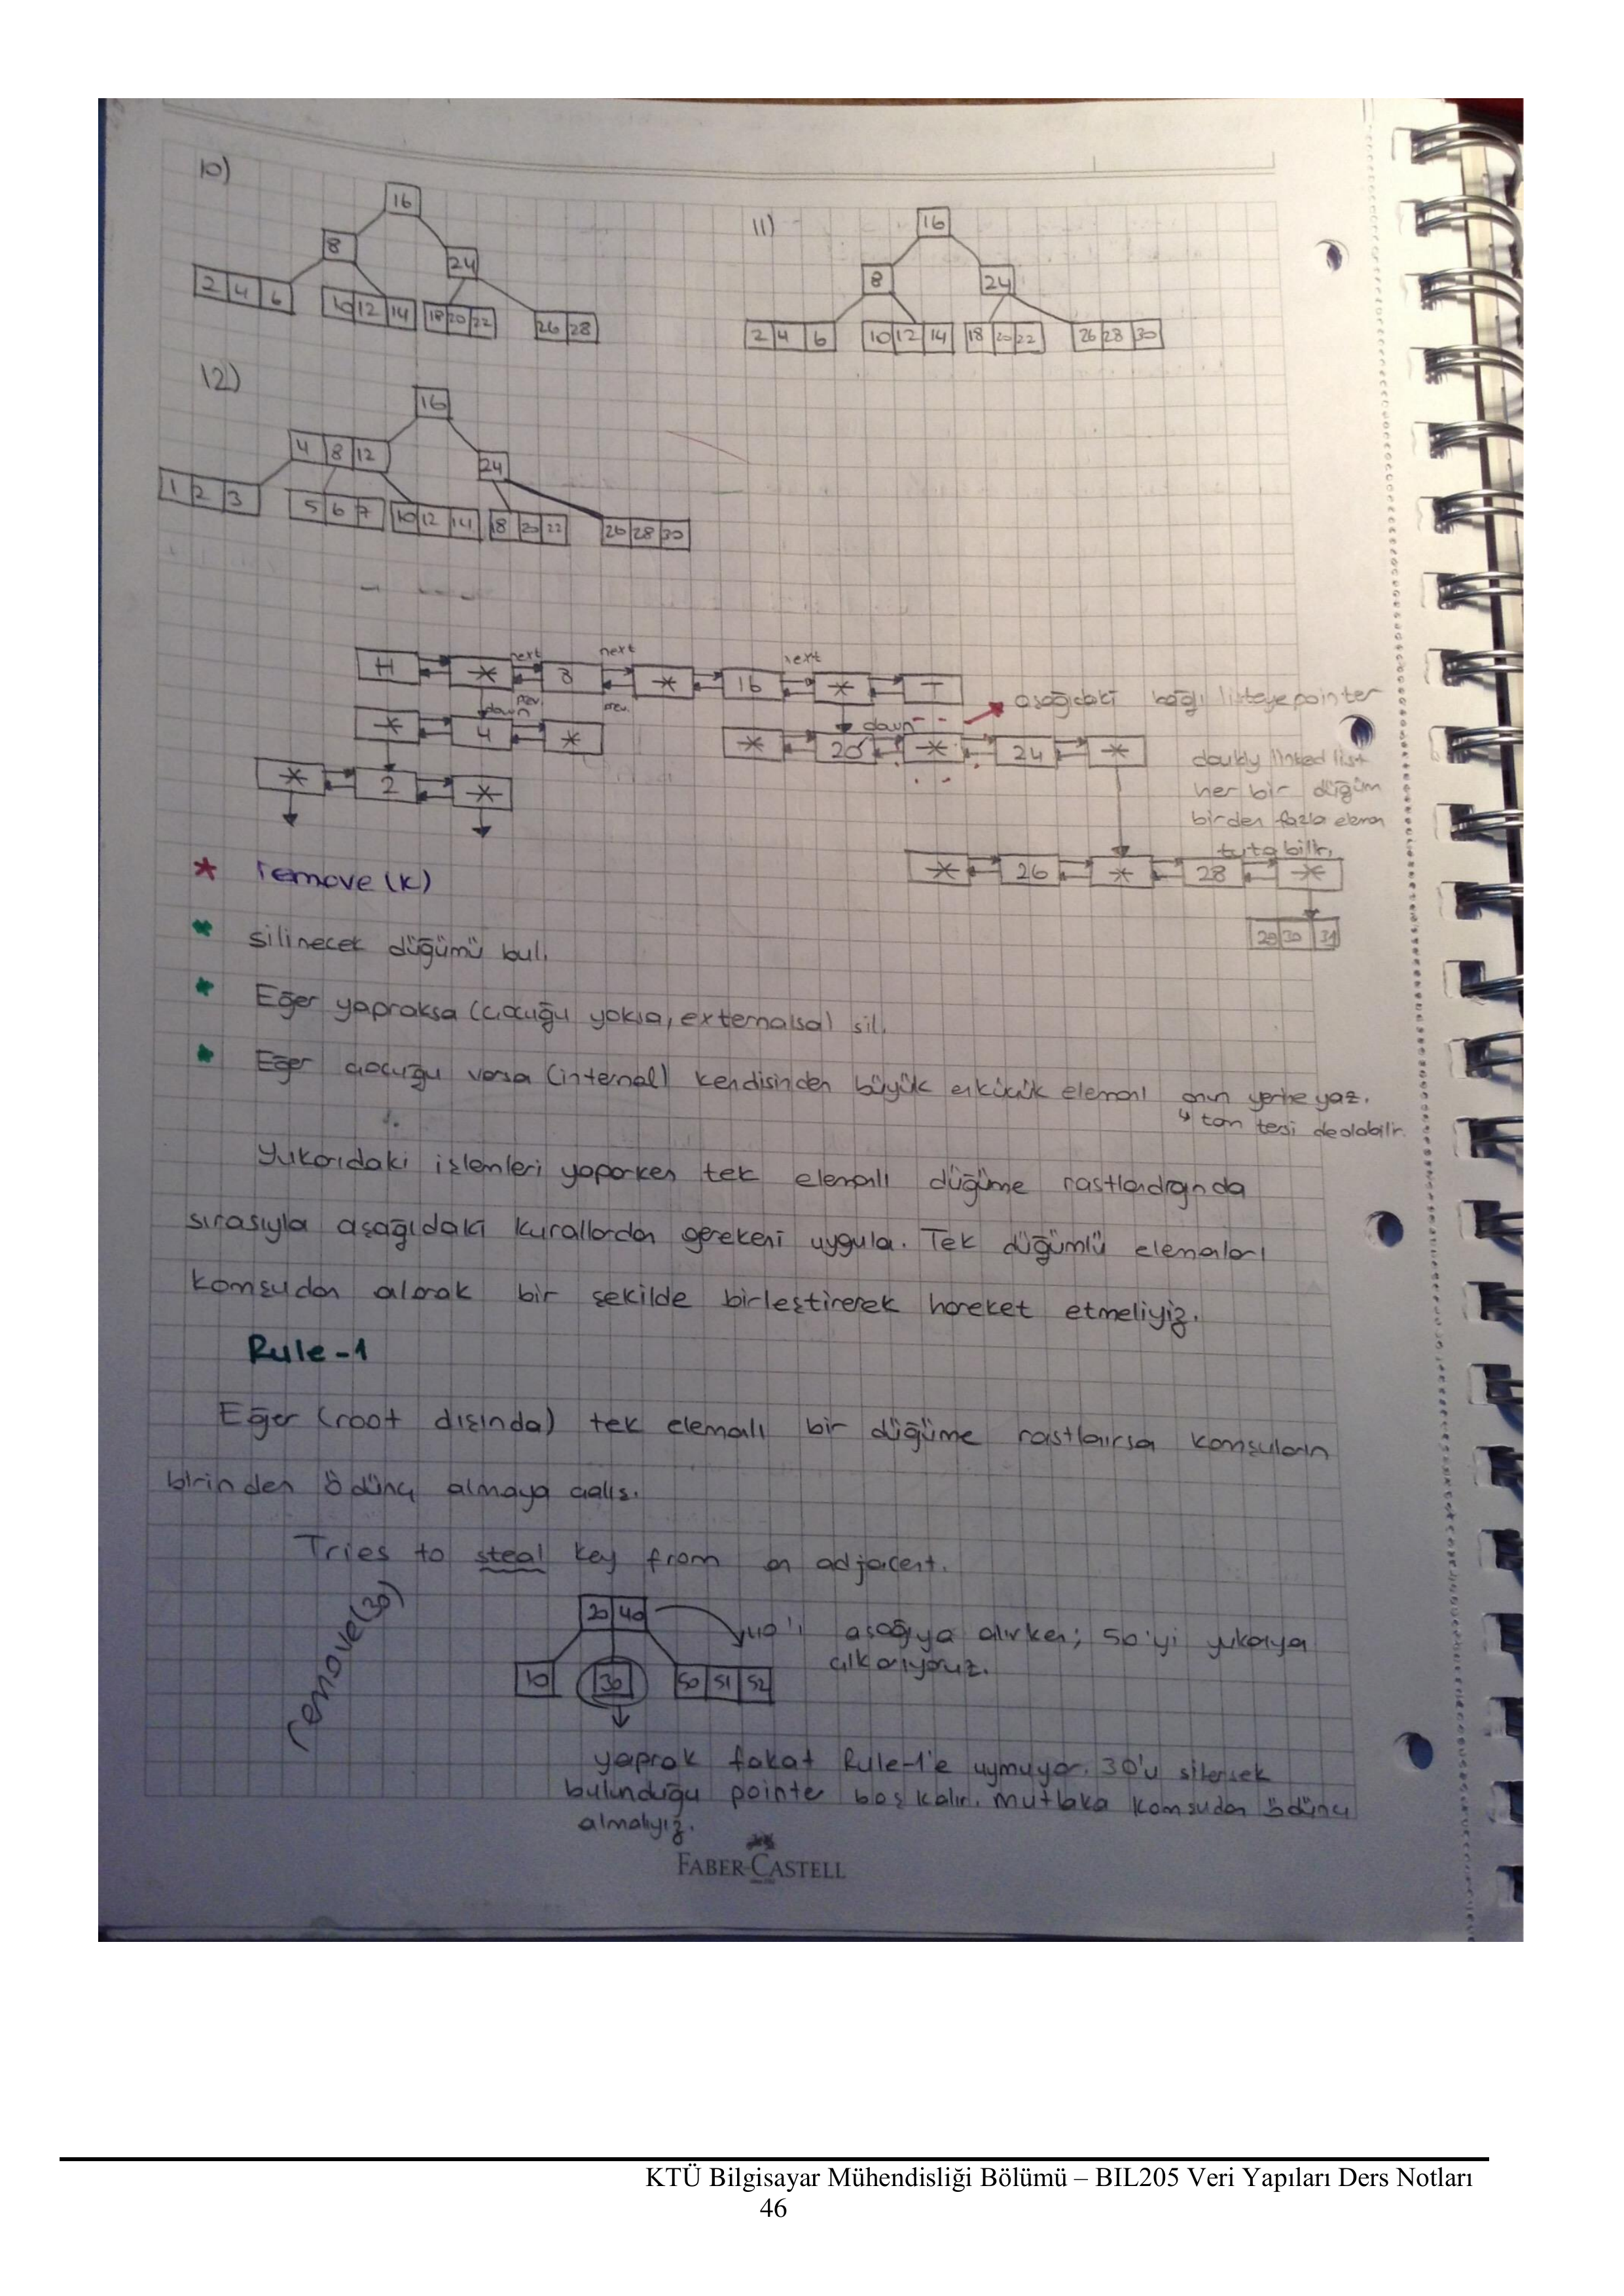 10)
16
8
24
2 4 6
10 12 14
18 20 22
26 28
11)
16
8
24
2 4 6
10 12 14
18 20 22
26 28 30
12)
16
4 8 12
24
1 2 3
5 6 7
10 12 14
18 20 22
26 28 30
next next next
H * 8 * 16 * T
prev. prev.
down down
aşağıdaki bağlı listeye pointer
* 4 *
* 20 * 24 *
* 2 *
doubly linked list
her bir düğüm
birden fazla eleman
tutabilir.
* 26 * 28 *
29 30 31
* remove (k)
* silinecek düğümü bul.
* Eğer yapraksa (çocuğu yoksa, externalsa) sil.
* Eğer çocuğu varsa (internal) kendisinden büyük en küçük elemanı onun yerine yaz.
↳ tam tersi de olabilir.
Yukarıdaki işlemleri yaparken tek elemanlı düğüme rastlandığında
sırasıyla aşağıdaki kurallardan gerekeni uygula. Tek düğümlü elemanları
komşudan alarak bir şekilde birleştirerek hareket etmeliyiz.
Rule-1
Eğer (root dışında) tek elemalı bir düğüme rastlanırsa komşuların
birinden ödünç almaya çalış.
Tries to steal key from an adjacent.
remove(30)
20 40
40'ı aşağıya alırken; 50'yi yukarıya
çıkarıyoruz.
10
30
50 51 52
yaprak fakat Rule-1'e uymuyor. 30'u silersek
bulunduğu pointer boş kalır. mutlaka komşudan ödünç
almalıyız.
FABER-CASTELL
KTÜ Bilgisayar Mühendisliği Bölümü – BIL205 Veri Yapıları Ders Notları
46